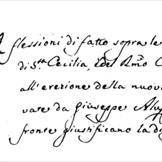 flessioni di fatto sopra le
di S.ta Cecilia, e del Rmo C
all'erezione della nuova
vare da Giuseppe
fronte giustificano la d